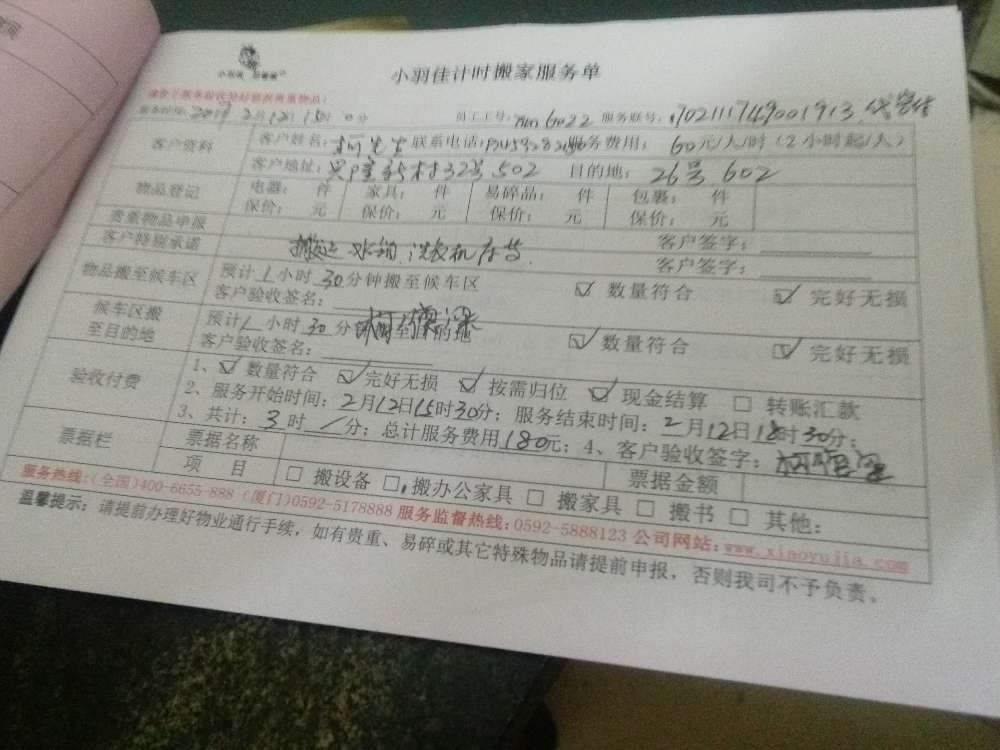 小羽佳计时搬家服务单
服务时间：2019 2月12日15时 0分 员工工号：6022 服务账号：
客户资料 客户姓名：柯先生 联系电话： 服务费用：60元/人/时（2小时起/人）
客户地址：32号502 目的地：26号602
物品登记 电器： 件 家具： 件 易碎品： 件 包裹： 件
保价： 元 保价： 元 保价： 元 保价： 元
贵重物品申报 客户签字：
客户特别承诺 搬运 冰箱 洗衣机 客户签字：
物品搬至候车区 预计1小时30分钟搬至候车区 ☑ 数量符合 ☑ 完好无损
客户验收签名：
候车区搬至目的地 预计1小时30分 目的地 ☑ 数量符合 ☑ 完好无损
客户验收签名：
验收付费 1、☑ 数量符合 ☑ 完好无损 ☑ 按需归位 ☑ 现金结算 □ 转账汇款
2、服务开始时间：2月12日15时30分；服务结束时间：2月12日18时30分；
3、共计：3时/分；总计服务费用180元；4、客户验收签字：
票据栏 票据名称 票据金额
项 目 □ 搬设备 □ 搬办公家具 □ 搬家具 □ 搬书 □ 其他：
服务热线：（全国）400-6655-888（厦门）0592-5178888 服务监督热线：0592-5888123 公司网站：www.xiaoyujia.com
温馨提示：请提前办理好物业通行手续，如有贵重、易碎或其它特殊物品请提前申报，否则我司不予负责。